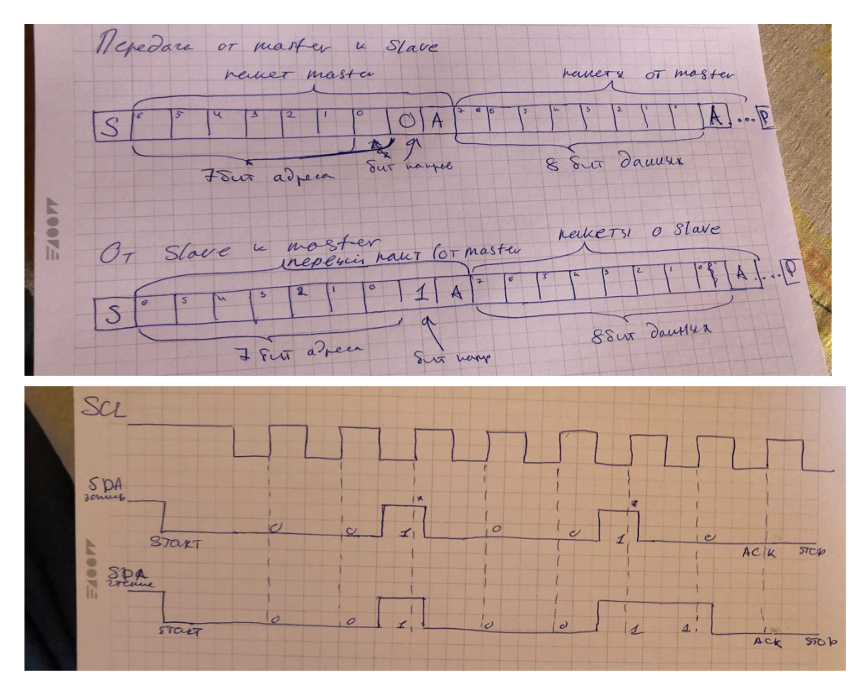 Передача от master к Slave
пакет master
пакеты от master
S 6 5 4 3 2 1 0 0 A 7 6 5 4 3 2 1 0 A ... P
7 бит адреса
бит направ
8 бит данных
От Slave к master
первый пакт (от master
пакеты о Slave
S 6 5 4 3 2 1 0 1 A 7 6 5 4 3 2 1 0 A ... P
7 бит адреса
бит напр
8 бит данных
SCL
SDA
запись
START 0 0 1 0 0 1 0 ACK STOP
SDA
чтение
START 0 0 1 0 0 1 1 ACK STOP